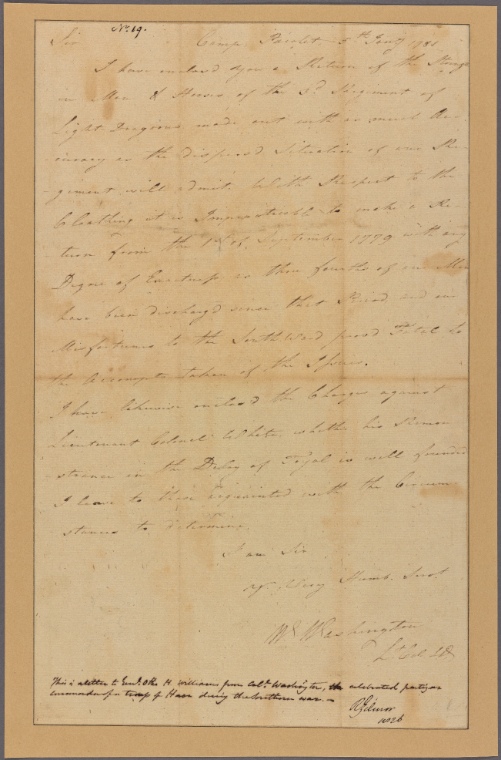 No. 19.
Sir Camp Pacolet 5th Jany 1781
I have enclosed you a Return of the Strength
in Men & Horses of the 3d Regiment of
Light Dragoons made out with as much Acc-
uracy as the dispersed Situation of our Re-
giment will admit. With Respect to the
Cloathing it is Impracticable to make a Re-
turn from the 1st of September 1779 with any
Degree of Exactness as three fourths of our Men
have been discharg'd since that Period and our
Misfortunes to the Southward proved Fatal to
the Accompts taken of the Issues.
I have likewise enclosed the Charges against
Lieutenant Colonel White, whether his Remon-
strance in the Delay of Tryal is well founded
I leave to those acquainted with the Circum-
stances to determine.
I am Sir
Yr. Very Humb. Servt
W. Washington
Lt. Col. LD
This is a letter to Genl. O. H. Williams from Col. Washington, the celebrated partizan
commander of a troop of Horse during the Southern war.
R Gilmor
1826